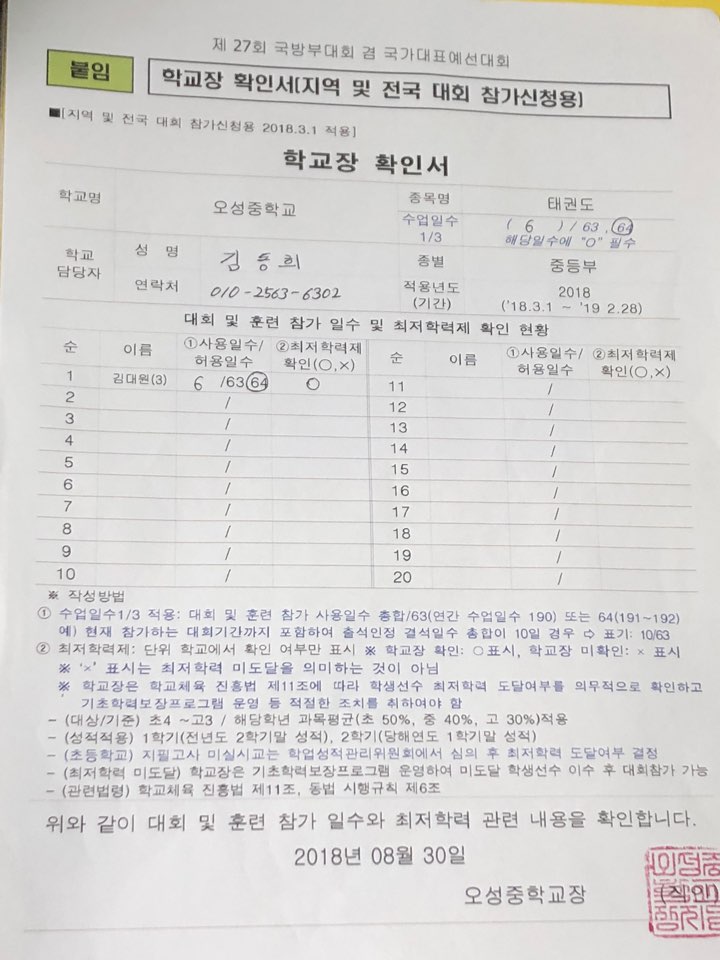 제 27회 국방부대회 겸 국가대표예선대회
붙임
학교장 확인서(지역 및 전국 대회 참가신청용)
■[지역 및 전국 대회 참가신청용 2018.3.1 적용]
학교장 확인서
학교명 오성중학교 종목명 태권도
수업일수 1/3 ( 6 ) / 63 , 64
해당일수에 "O" 필수
학교 담당자 성 명 김동희 종별 중등부
연락처 010-2563-6302 적용년도 (기간) 2018
('18.3.1 ~ '19 2.28)
대회 및 훈련 참가 일수 및 최저학력제 확인 현황
순 이름 ①사용일수/허용일수 ②최저학력제 확인(○,×) 순 이름 ①사용일수/허용일수 ②최저학력제 확인(○,×)
1 김대원(3) 6 /63 64 O 11 /
2 / 12 /
3 / 13 /
4 / 14 /
5 / 15 /
6 / 16 /
7 / 17 /
8 / 18 /
9 / 19 /
10 / 20 /
※ 작성방법
① 수업일수1/3 적용: 대회 및 훈련 참가 사용일수 총합/63(연간 수업일수 190) 또는 64(191~192)
예) 현재 참가하는 대회기간까지 포함하여 출석인정 결석일수 총합이 10일 경우 ⇨ 표기: 10/63
② 최저학력제: 단위 학교에서 확인 여부만 표시 ※ 학교장 확인: ○표시, 학교장 미확인: × 표시
※ '×' 표시는 최저학력 미도달을 의미하는 것이 아님
※ 학교장은 학교체육 진흥법 제11조에 따라 학생선수 최저학력 도달여부를 의무적으로 확인하고
기초학력보장프로그램 운영 등 적절한 조치를 취하여야 함
- (대상/기준) 초4 ~고3 / 해당학년 과목평균(초 50%, 중 40%, 고 30%)적용
- (성적적용) 1학기(전년도 2학기말 성적), 2학기(당해연도 1학기말 성적)
- (초등학교) 지필고사 미실시교는 학업성적관리위원회에서 심의 후 최저학력 도달여부 결정
- (최저학력 미도달) 학교장은 기초학력보장프로그램 운영하여 미도달 학생선수 이수 후 대회참가 가능
- (관련법령) 학교체육 진흥법 제11조, 동법 시행규칙 제6조
위와 같이 대회 및 훈련 참가 일수와 최저학력 관련 내용을 확인합니다.
2018년 08월 30일
오성중학교장 (직인)